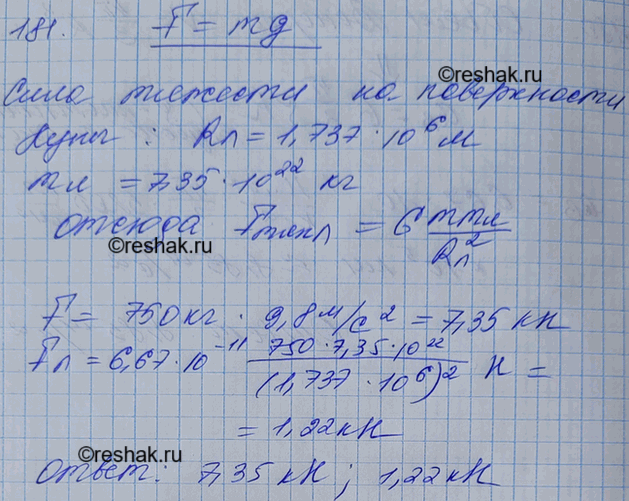 181. F = mg
©reshak.ru
Сила тяжести на поверхности
Луны: Rл = 1,737 · 10⁶ м
mл = 7,35 · 10²² кг
отсюда Fтяжл = G mmл / Rл²
©reshak.ru
F = 750 кг · 9,8 м/с² = 7,35 кН
Fл = 6,67 · 10⁻¹¹ 750 · 7,35 · 10²² / (1,737 · 10⁶)² Н =
= 1,22 кН
©reshak.ru
Ответ: 7,35 кН; 1,22 кН